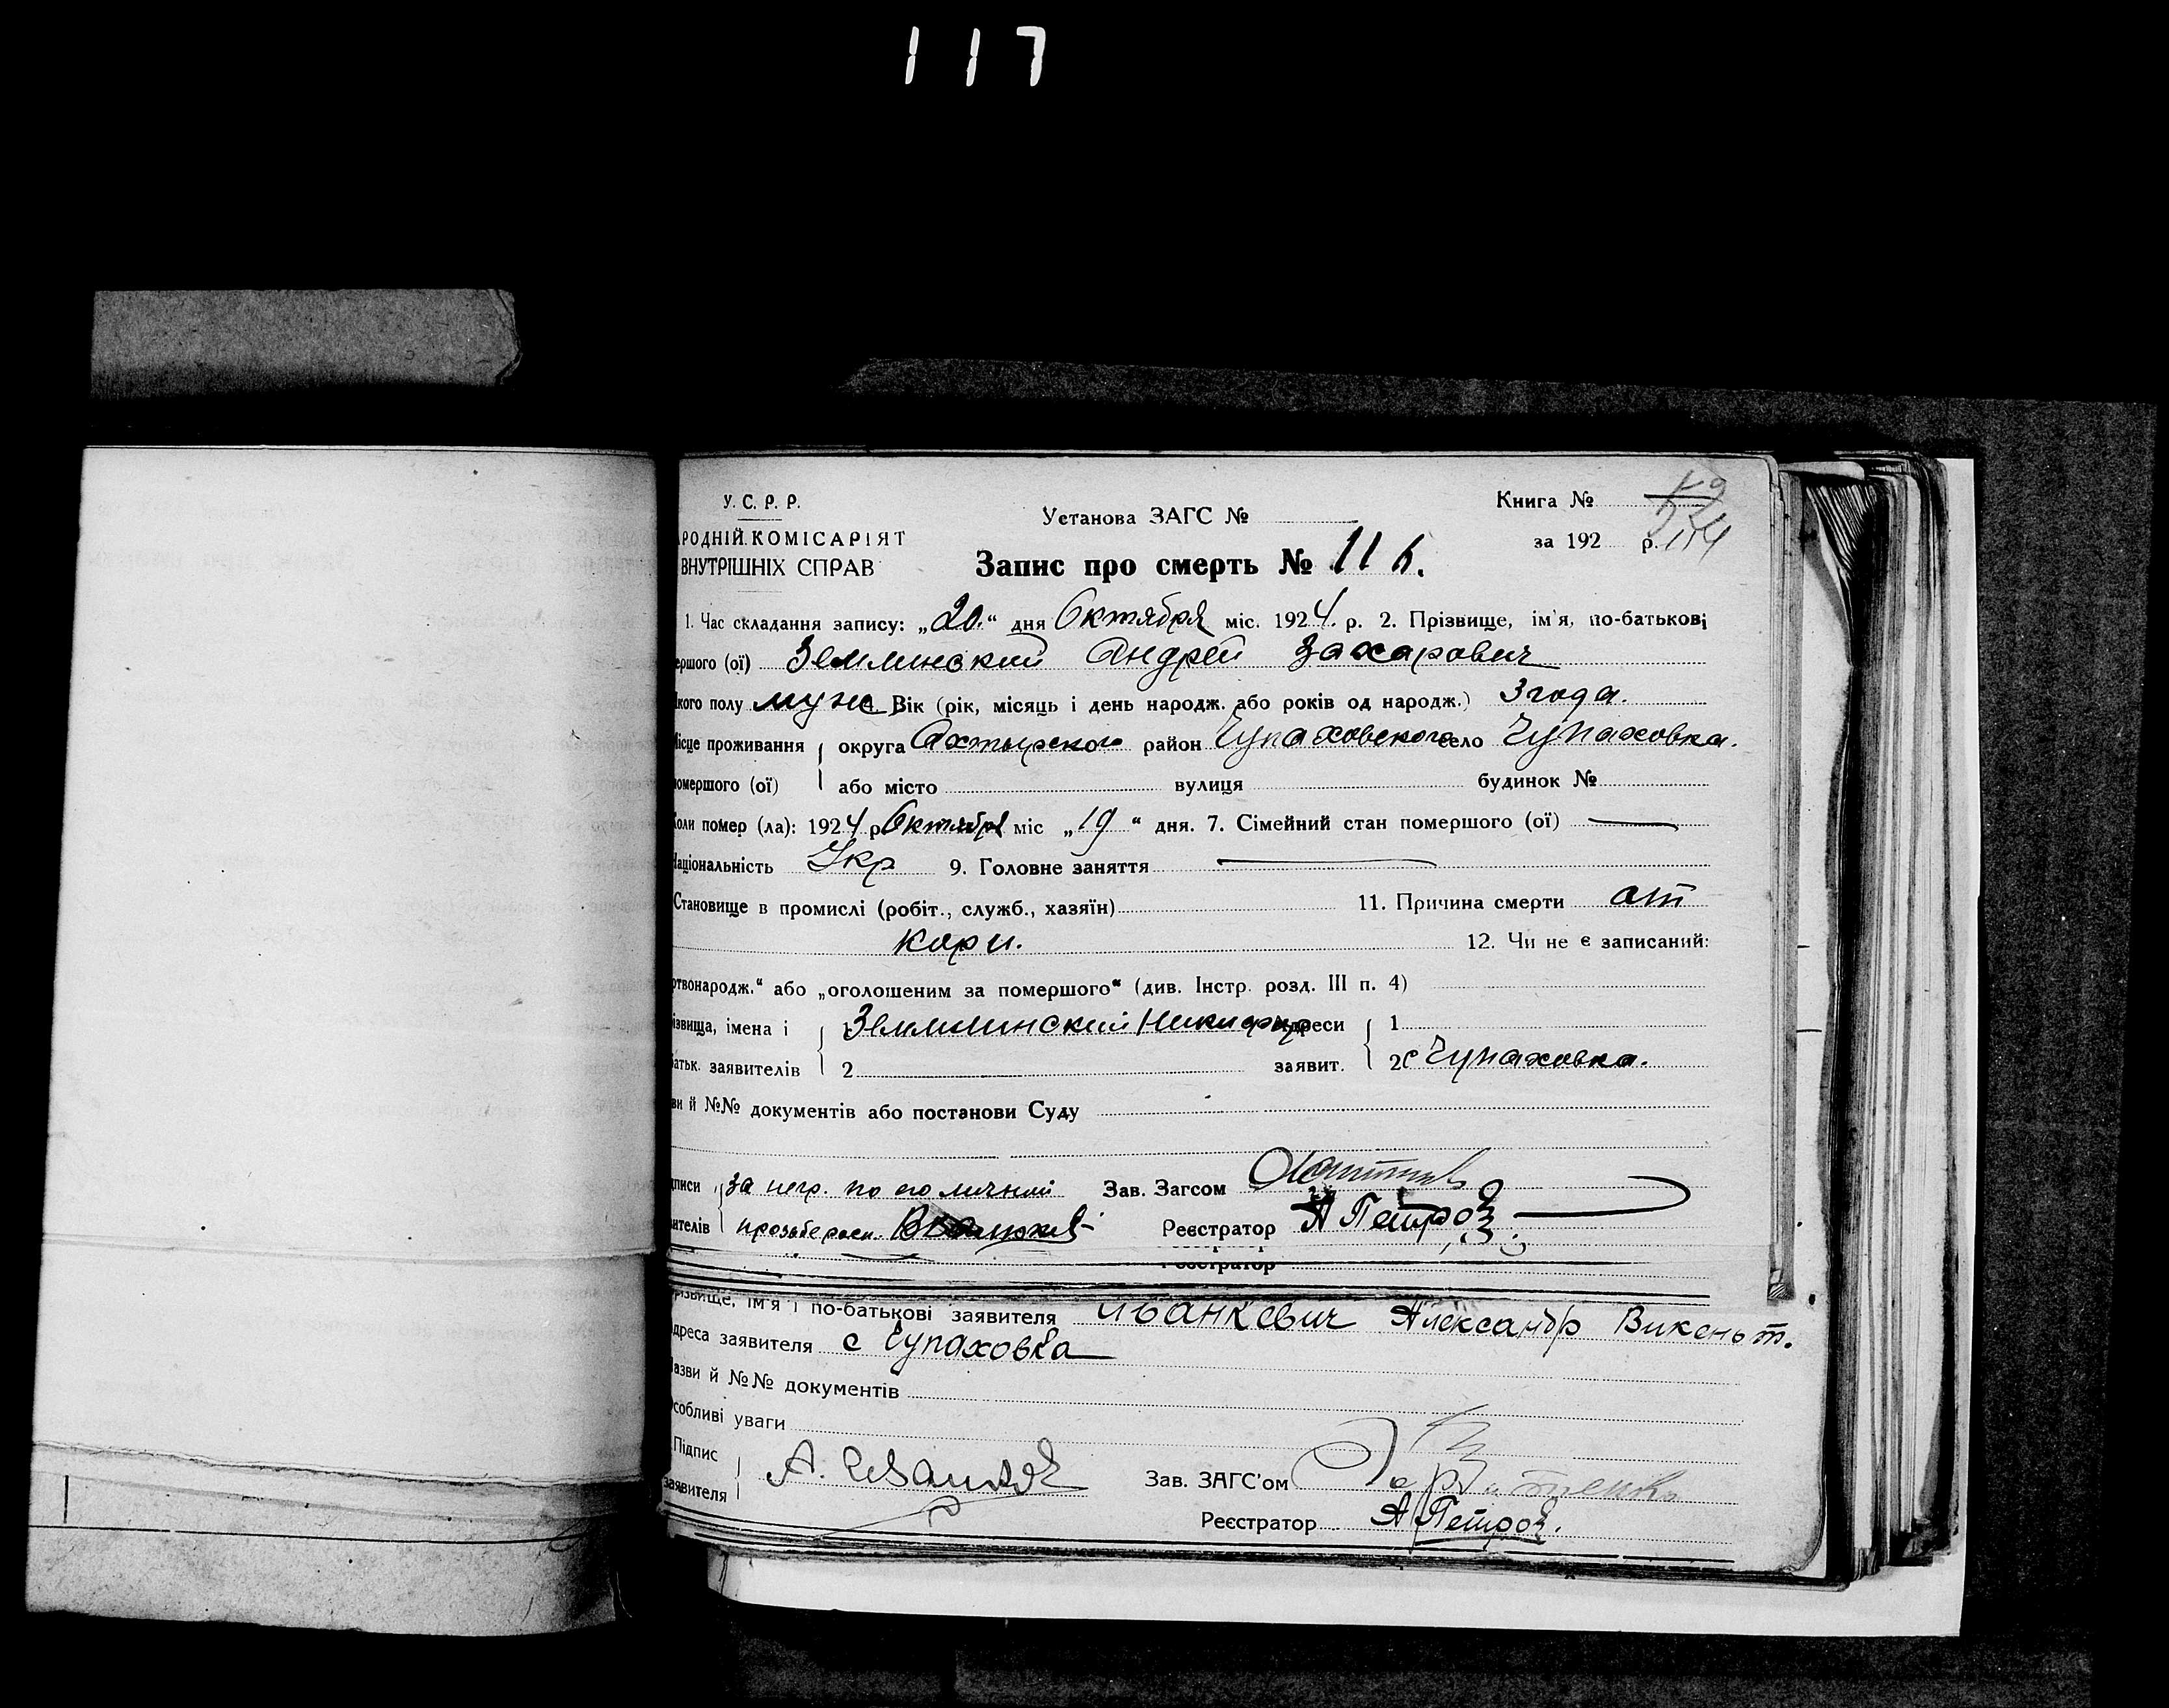 117
У. С. Р. Р.
РОДНІЙ КОМІСАРІЯТ
ВНУТРІШНІХ СПРАВ
Установа ЗАГС №
Книга №
за 192 р. 154
Запис про смерть № 116.
1. Час складання запису: „20.“ дня Октября міс. 1924. р. 2. Прізвище, ім'я, по-батькові
ершого (ої) Землинский Андрей Захарович
кого полу муж. Вік (рік, місяць і день народж. або років од народж.) 3 года.
ісце проживання округа Ахтырского район Чупаховского село Чупаховка.
омершого (ої) або місто вулиця будинок №
Коли помер (ла): 1924 р Октября міс „19“ дня. 7. Сімейний стан помершого (ої) —
Національність Укр 9. Головне заняття —
Становище в промислі (робіт., служб., хазяїн) 11. Причина смерти от
кори. 12. Чи не є записаний:
ртвонародж.“ або „оголошеним за помершого“ (див. Інстр. розд. III п. 4)
ізвища, імена і Землинский Никифор адреси 1
батьк. заявителів 2 заявит. 2 с Чупаховка.
ви й №№ документів або постанови Суду
дписи за негр. по его личной Зав. Загсом
вителів Реєстратор А Петров
Реєстратор
різвище, ім'я і по-батькові заявителя Иванкевич Александр Викеньт.
дреса заявителя с Чупаховка
азви й №№ документів
собливі уваги
Підпис
заявителя Зав. ЗАГС'ом
Реєстратор А Петров.